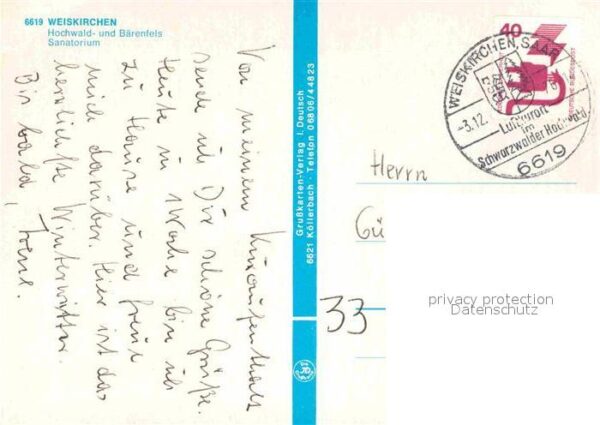 6619 WEISKIRCHEN
Hochwald- und Bärenfels
Sanatorium
Von meinem Kuraufenthalt
sende ich Dir schöne Grüße.
Heute in 1 Woche bin ich
zu Hause und freue
mich darüber. Hier ist das
herrlichste Winterwetter.
Bis bald,
Grußkarten-Verlag I. Deutsch
6621 Köllerbach · Telefon 06806/44823
40
WEISKIRCHEN, SAAR
-3.12.
Luftkurort
im
Schwarzwälder Hochwald
6619
Herrn
Gü
33
privacy protection
Datenschutz